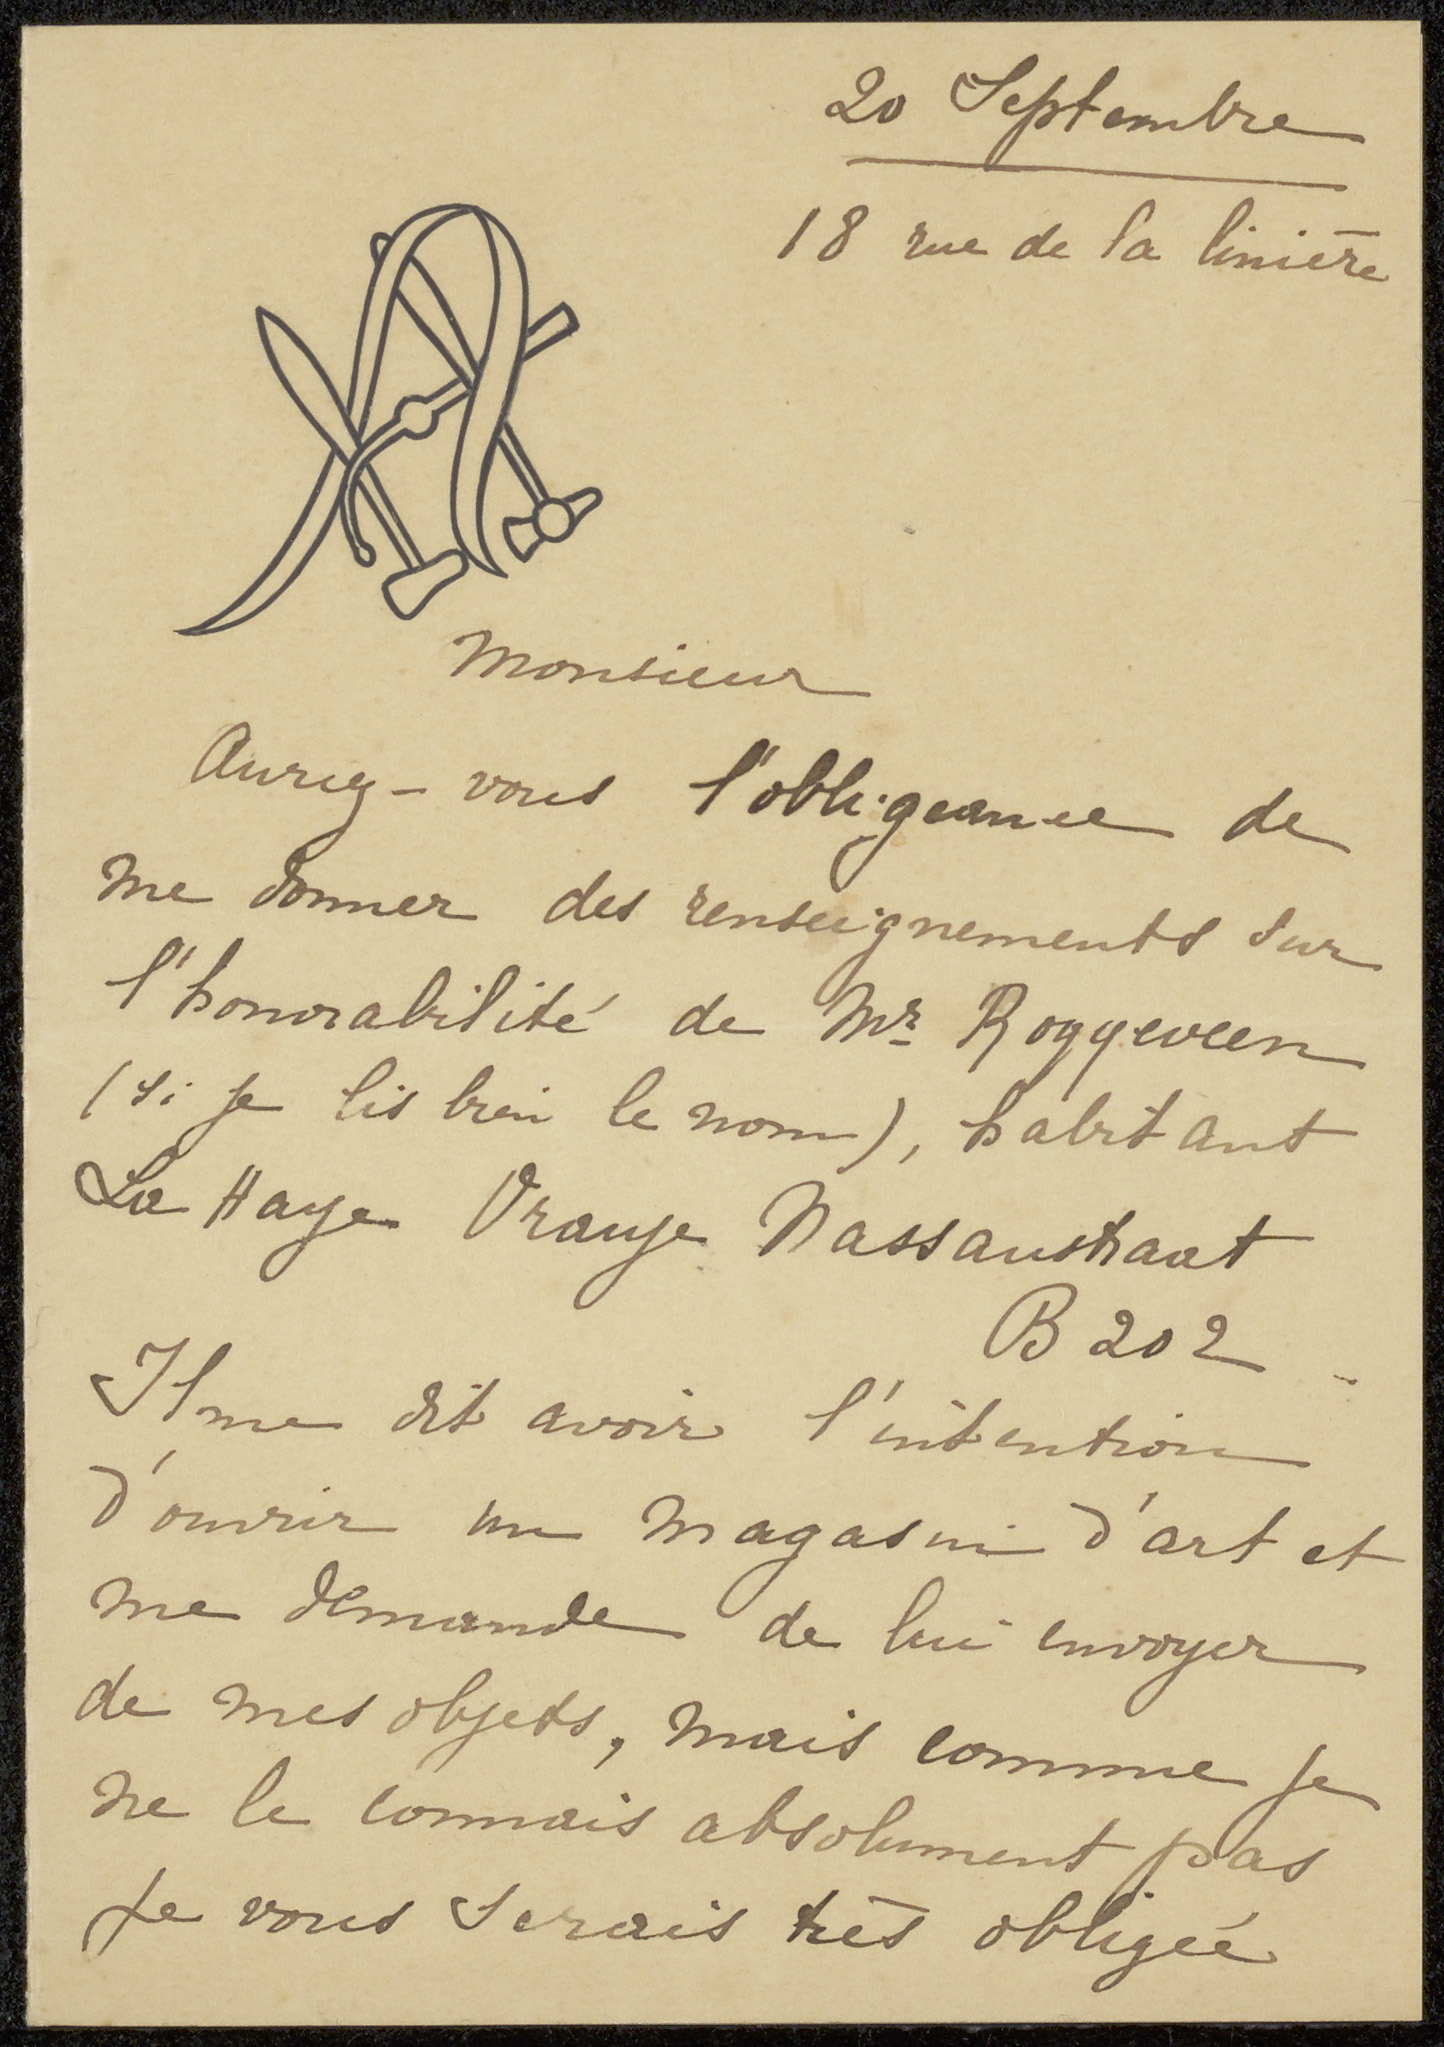 20 Septembre
18 rue de la linière
Monsieur
Auriez-vous l'obligeance de
me donner des renseignements sur
l'honorabilité de Mr Roggeveen
(si je lis bien le nom), habitant
La Haye Oranje Nassaustraat
B 202
Il me dit avoir l'intention
d'ouvrir un magasin d'art et
me demande de lui envoyer
de mes objets, mais comme je
ne le connais absolument pas
je vous serais très obligée